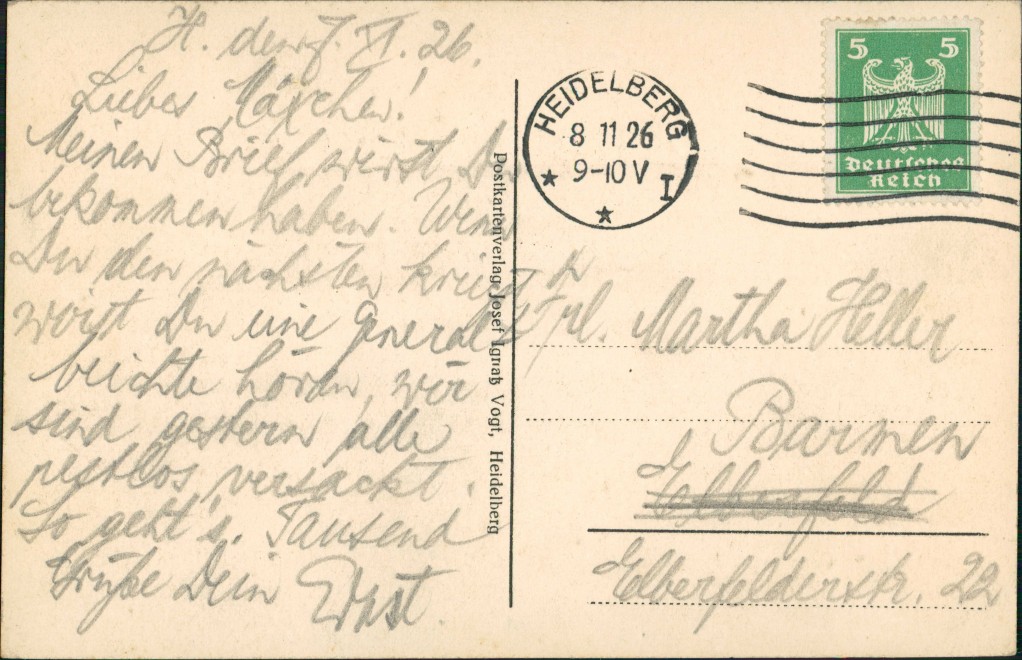 H. den 7. XI. 26.
Liebes Märchen!
Meinen Brief wirst Du
bekommen haben. Wenn
Du den nächsten kriegst
wirst Du eine General
beichte hören, wir
sind gestern alle
restlos versackt.
So geht's. Tausend
Grüße Dein Ernst.
Postkartenverlag Josef Ignatz Vogt, Heidelberg
HEIDELBERG
8 11 26
9-10 V
I
5 5
Deutsches
Reich
Frl. Martha Heller
Barmen
Elberfeld
Elberfelderstr. 22